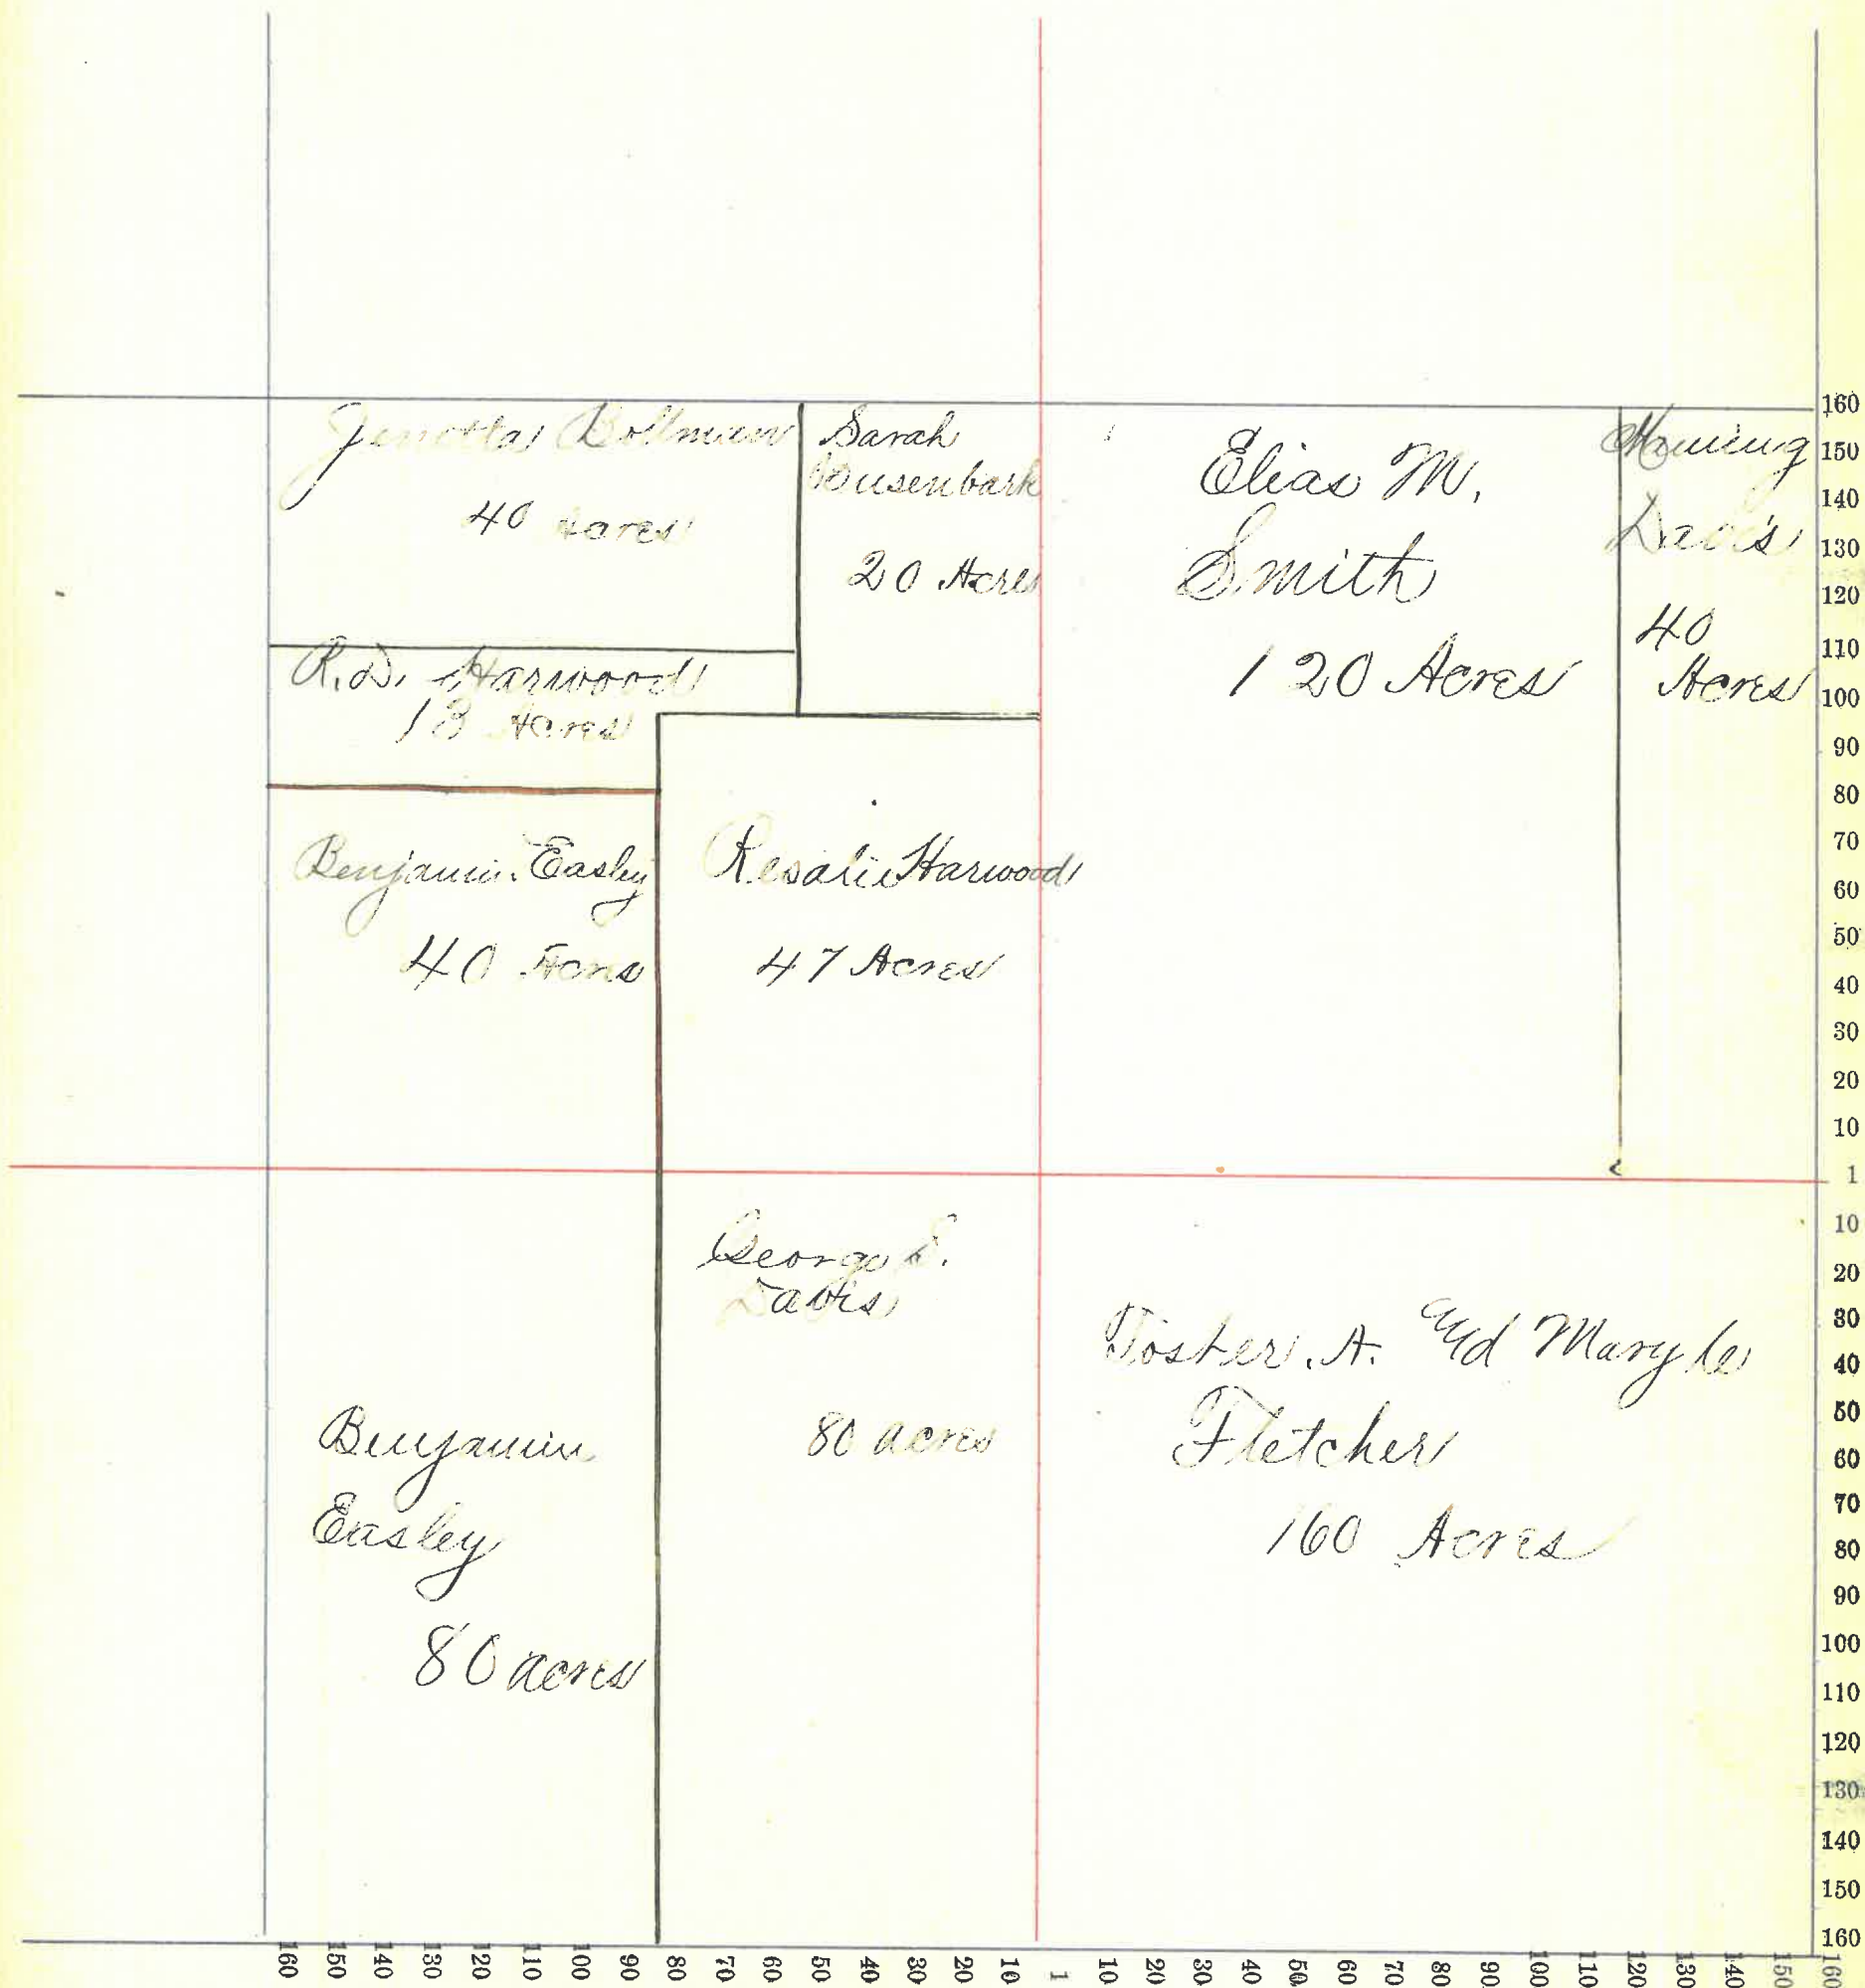 Jenetta Bollman
40 acres
Sarah
Busenbark
20 Acres
Elias M.
Smith
120 Acres
Davis
40
Acres
R. D. Harwood
13 Acres
Benjamin Easley
40 Acres
Rosalie Harwood
47 Acres
George S.
Davis
80 acres
Benjamin
Easley
80 acres
Foster A. and Mary
Fletcher
160 Acres
160
150
140
130
120
110
100
90
80
70
60
50
40
30
20
10
1
10
20
30
40
50
60
70
80
90
100
110
120
130
140
150
160
160 150 140 130 120 110 100 90 80 70 60 50 40 30 20 10 1 10 20 30 40 50 60 70 80 90 100 110 120 130 140 150 160